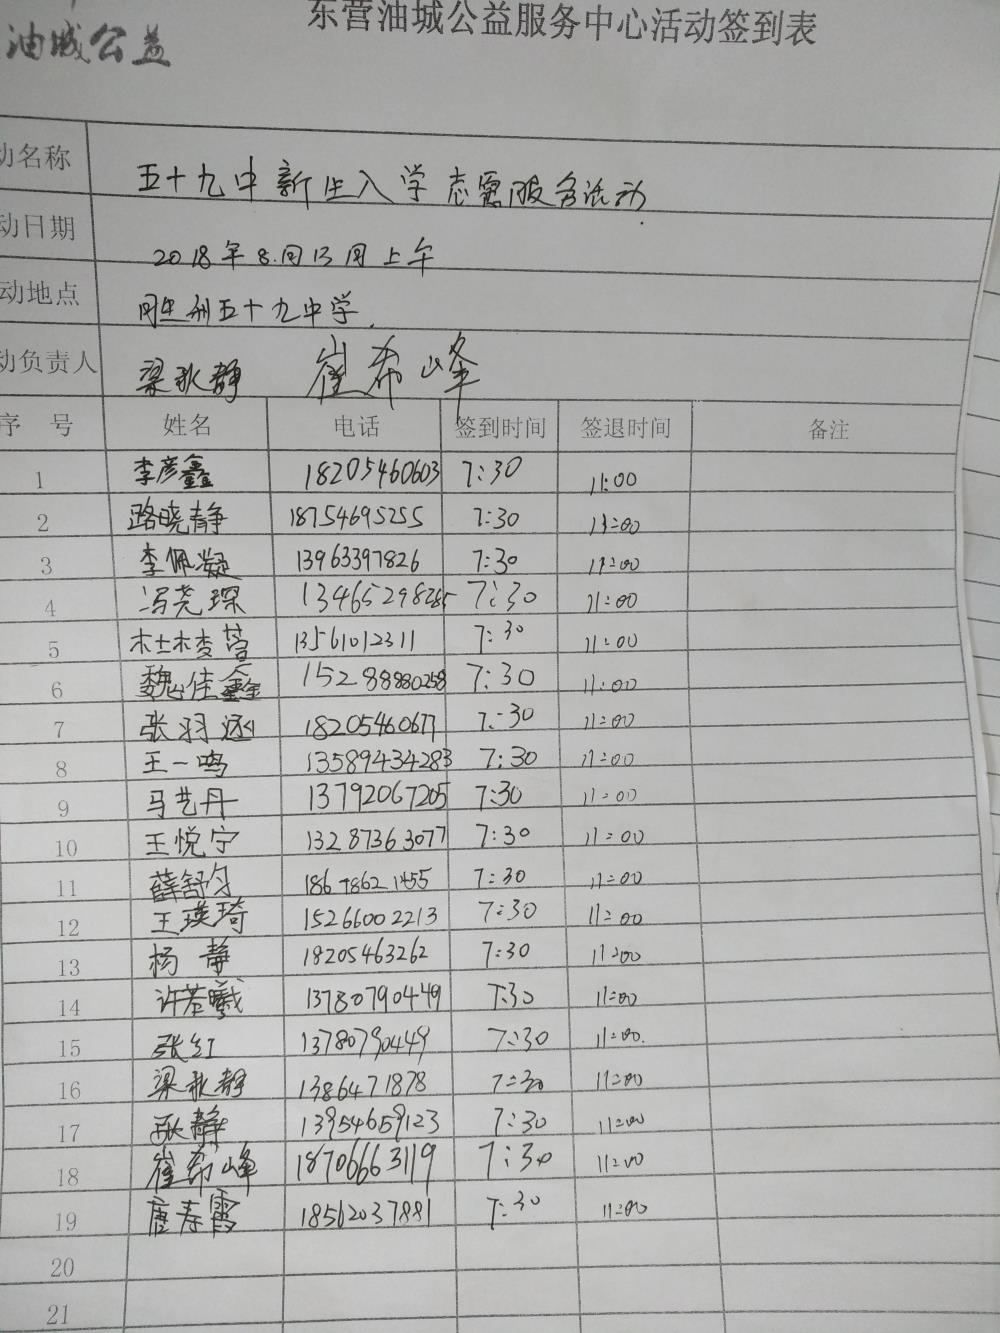 东营油城公益服务中心活动签到表
油城公益
动名称 五十九中新生入学志愿服务活动
动日期 2018年8月13日上午
动地点 胜利五十九中学
动负责人 梁秋静 崔希峰
序 号 姓名 电话 签到时间 签退时间 备注
1 李彦鑫 18205460603 7:30 11:00
2 路晓静 18754695255 7:30 11:00
3 李佩凝 13963397826 7:30 11:00
4 冯尧琛 13465298285 7:30 11:00
5 杜梦萱 13561012311 7:30 11:00
6 魏佳鑫 15288880258 7:30 11:00
7 张羽涵 18205460677 7:30 11:00
8 王一鸣 13589434283 7:30 11:00
9 马艺丹 13792067205 7:30 11:00
10 王悦宁 13287363077 7:30 11:00
11 薛舒匀 7:30 11:00
12 王瑛琦 15266002213 7:30 11:00
13 杨静 18205463262 7:30 11:00
14 许若曦 13780790449 7:30 11:00
15 张红 13780790449 7:30 11:00
16 梁秋静 1386471878 7:30 11:00
17 耿静 13954659123 7:30 11:00
18 崔希峰 18706663119 7:30 11:00
19 唐寿霞 18562037881 7:30 11:00
20
21